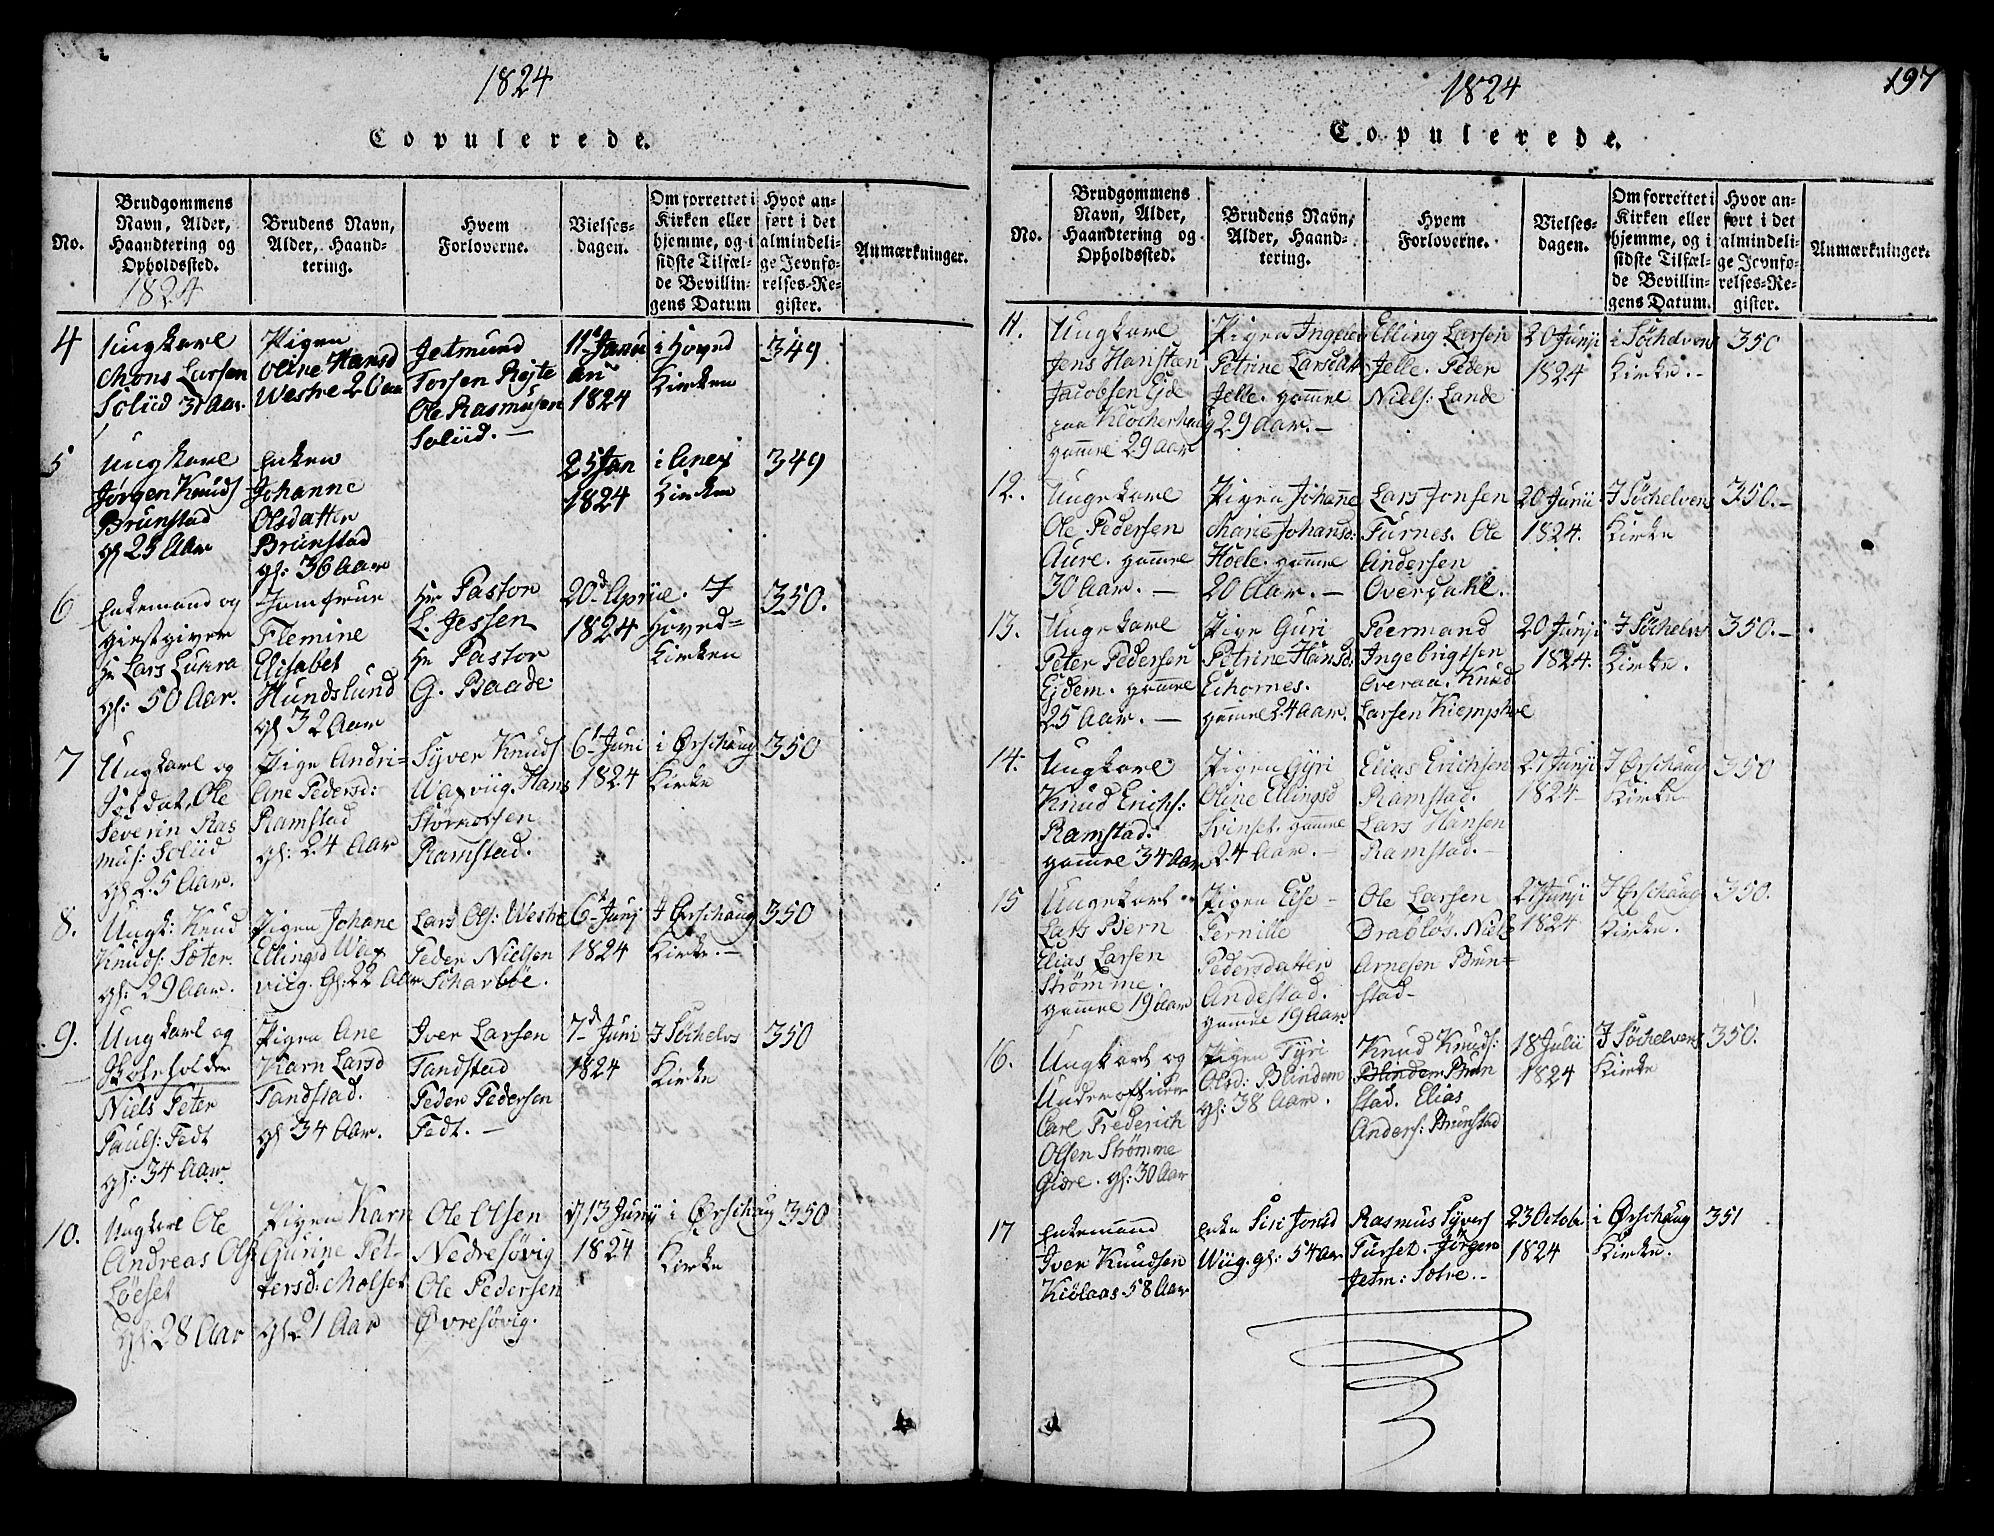 1824
Copulerede.
No.
Brudgommens
Navn, Alder,
Haandtering og
Opholdssted.
1824
Brudens Navn,
Alder, Haand-
tering.
Hvem
Forloverne.
Vielses-
dagen.
Om forrettet i
Kirken eller
hjemme, og i
sidste Tilfæl-
de Bevillin-
gens Datum
Hvor an-
ført i det
almindeli-
ge Jevnfø-
relses-Re-
gister.
Anmærkninger.
4
Ungkarl
Mons Larsen
Soliid 31 Aar.
Pigen
Oline Hansd
Westre 20 Aar
Jetmund
Torsen Røjte
Ole Rasmusen
Soliid. —
11t Janu
ari
1824
i Hoved
Kirken
349
5
Ungkarl
Jørgen Knuds
Brunstad
gl 25 Aar
Enken
Johanne
Olsdatter
Brunstad
gl: 36 Aar
25 Jan
1824
i Anex
Kirken
349
6
Enkemand og
Giestgiver
Hr Lars Luxra
gl: 50 Aar.
Jomfrue
Flemine
Elisabet
Hundslund
gl 32 Aar
Hr Pastor
L. Jessen
Hr Pastor
G. Baade.
20d Aprie.
1824
I
Hoved=
Kirken
350.
7
Ungkarl og
Soldat, Ole
Severin Ras
mus: Soliid
gl 25 Aar.
Pige Andri-
Ane Pedersd:
Ramstad
gl: 24 Aar
Syver Knuds
Waxviig. Hans
Storkorsen
Ramstad.
6t Juni
1824
i Ørschaug
Kirke
350
8.
Ungk: Knud
Knuds: Sæter.
gl: 29 Aar.
Pigen Johane
Ellingsd Wax
viig. gl: 22 Aar
Lars Ols: Westre
Peder Nielsen
Scharbøe.
6t Junj
1824
I Ørschaug
Kirke. —
350
9.
Ungkarl og
Skoleholder
Niels Peter
Pauls: Fedt
gl: 34 Aar.
Pigen Ane
Karn Larsd
Tandstad.
gl 34 Aar.
Iver Larsen
Tandstad
Peder Pedersen
Fedt. —
7d Juni
1824
I Søchelvs
Kirke
350
10.
Ungkarl Ole
Andreas Ols
Løeset
gl: 28 Aar
Pigen Karn
Gurine Pet-
tersd: Molset
gl 21 Aar
Ole Olsen
Nedresøvig
Ole Pedersen
Øvresøvig.
d 13 Junij
1824
i Ørschaug
Kirke
350
1824
197
Copulerede.
No.
Brudgommens
Navn, Alder,
Haandtering og
Opholdssted.
Brudens Navn,
Alder, Haand-
tering.
Hvem
Forloverne.
Vielses-
dagen.
Om forrettet i
Kirken eller
hjemme, og i
sidste Tilfæl-
de Bevillin-
gens Datum.
Hvor an-
ført i det
almindeli-
ge Jevnfø-
relses-Re-
gister.
Anmærkninger.
11.
Ungkarl
Jens Hanstæn
Jacobsen Ejde
paa Klocherhaug
gamel 29 Aar
Pigen Ingebor
Petrine Larsdatt
Jelle. gammel
29 Aar. —
Elling Larsen
Jelle. Peder
Niels: Lande
20 Junji
1824
i Søchelvens
Kirke. —
350
12.
Ungekarl
Ole Pedersen
Aure. gammel
30 Aar. —
Pigen Johanne
Marie Johansd:
Hoele. gammel
20 Aar. —
Lars Jonsen
Furnes. Ole
Andersen
Overdahl.
20 Junii
1824.
I Søchelvens
Kirke
350. —
13.
Ungekarl
Peter Pedersen
Ejdem. gammel
25 Aar. —
Pige Guri
Petrine Hansd:
Eihornes.
gammel 24 Aar.
Peermand
Ingebrigtsen
Overaa. Knud
Larsen Kiemphoe
20 Junji
1824.
I Søchelvs
Kirke.
350. —
14.
Ungkarl
Knud Erichs:
Ramstad.
gammel 34 Aar
Pigen Gyri
Oline Ellingsd
Svinset. gammel
24 Aar. —
Elias Erichsen
Ramstad.
Lars Hansen
Ramstad. —
27 Junji
1824 —
I Ørschaug
Kirke
350
15
Ungekarl
Lars Bern
Elias Larsen
Strømme.
gammel 19 Aar
Pigen Else
Pernille
Pedersdatter
Andestad.
gammel 19 Aar.
Ole Larsen
Drabløs. Niels
Arnesen Brun=
stad —
27 Junji
1824
I Ørschaug
Kirke.
350.
16.
Ungkarl og
Underofficer
Carl Frederich
Olsen Strømme
Giære. gl: 30 Aar
Pigen Tyri
Olsd: Blindem
gl: 38 Aar.
Knud Knuds:
Blindem Brun
stad. Elias
Anders: Brunstad
18 Julii
1824
I Søchelvens
Kirke
350.
17
Enkemand
Iver Knudsen
Kiølaas 58 Aar
Enke Siri Jonsd
Wiig. gl: 54 Aar
Rasmus Syvers
Furset. Jørgen
Jetm: Sætre. —
23 Octobr
1824
i Ørschaug
Kirke.
351